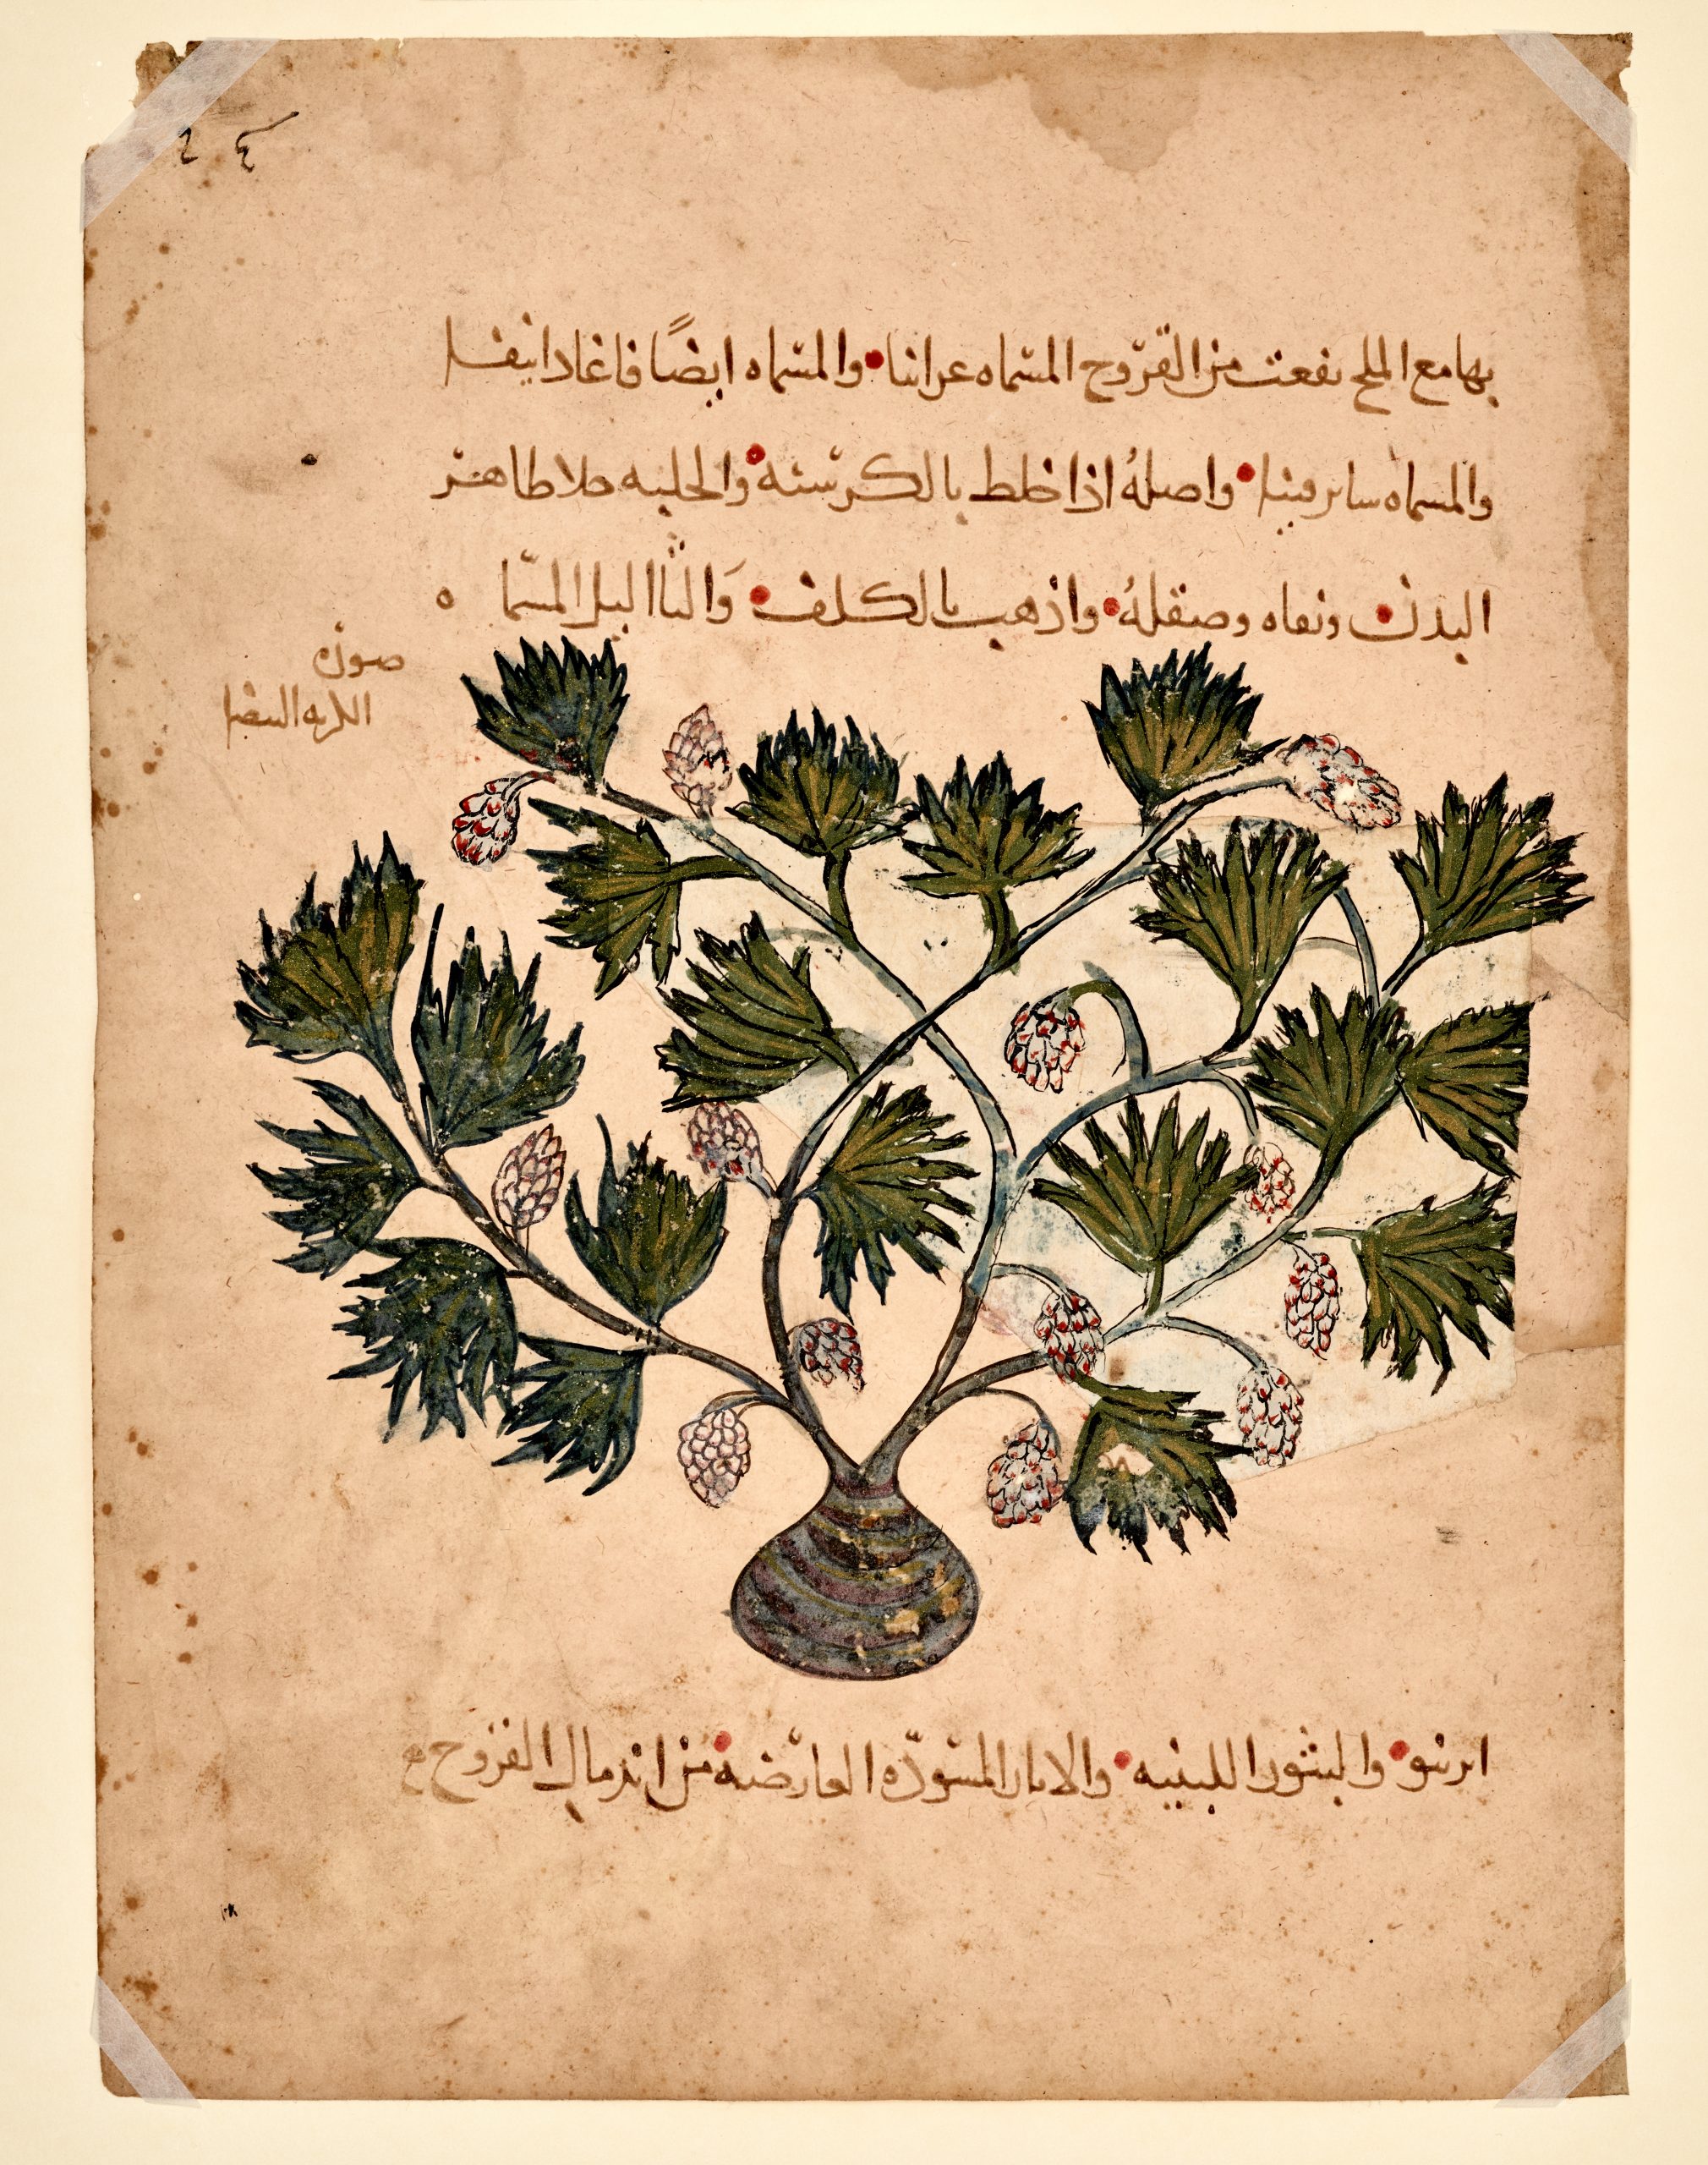 بها مع الملح نفعت من القروح المسماه عرانيا والمسماه ايضًا فاغادانيقا
والمسماه سابرفينا واصلهُ اذا خلط بالكرسنه والحلبه جلا ظاهر
البدن ونقاه وصقلهُ واذهب بالكلف وَالثااليل المسما ه
صوره
الكرمه البيضا
ابرنيو والبثور اللبنيه والاثار المسودّه العارضه من اندمال القروح